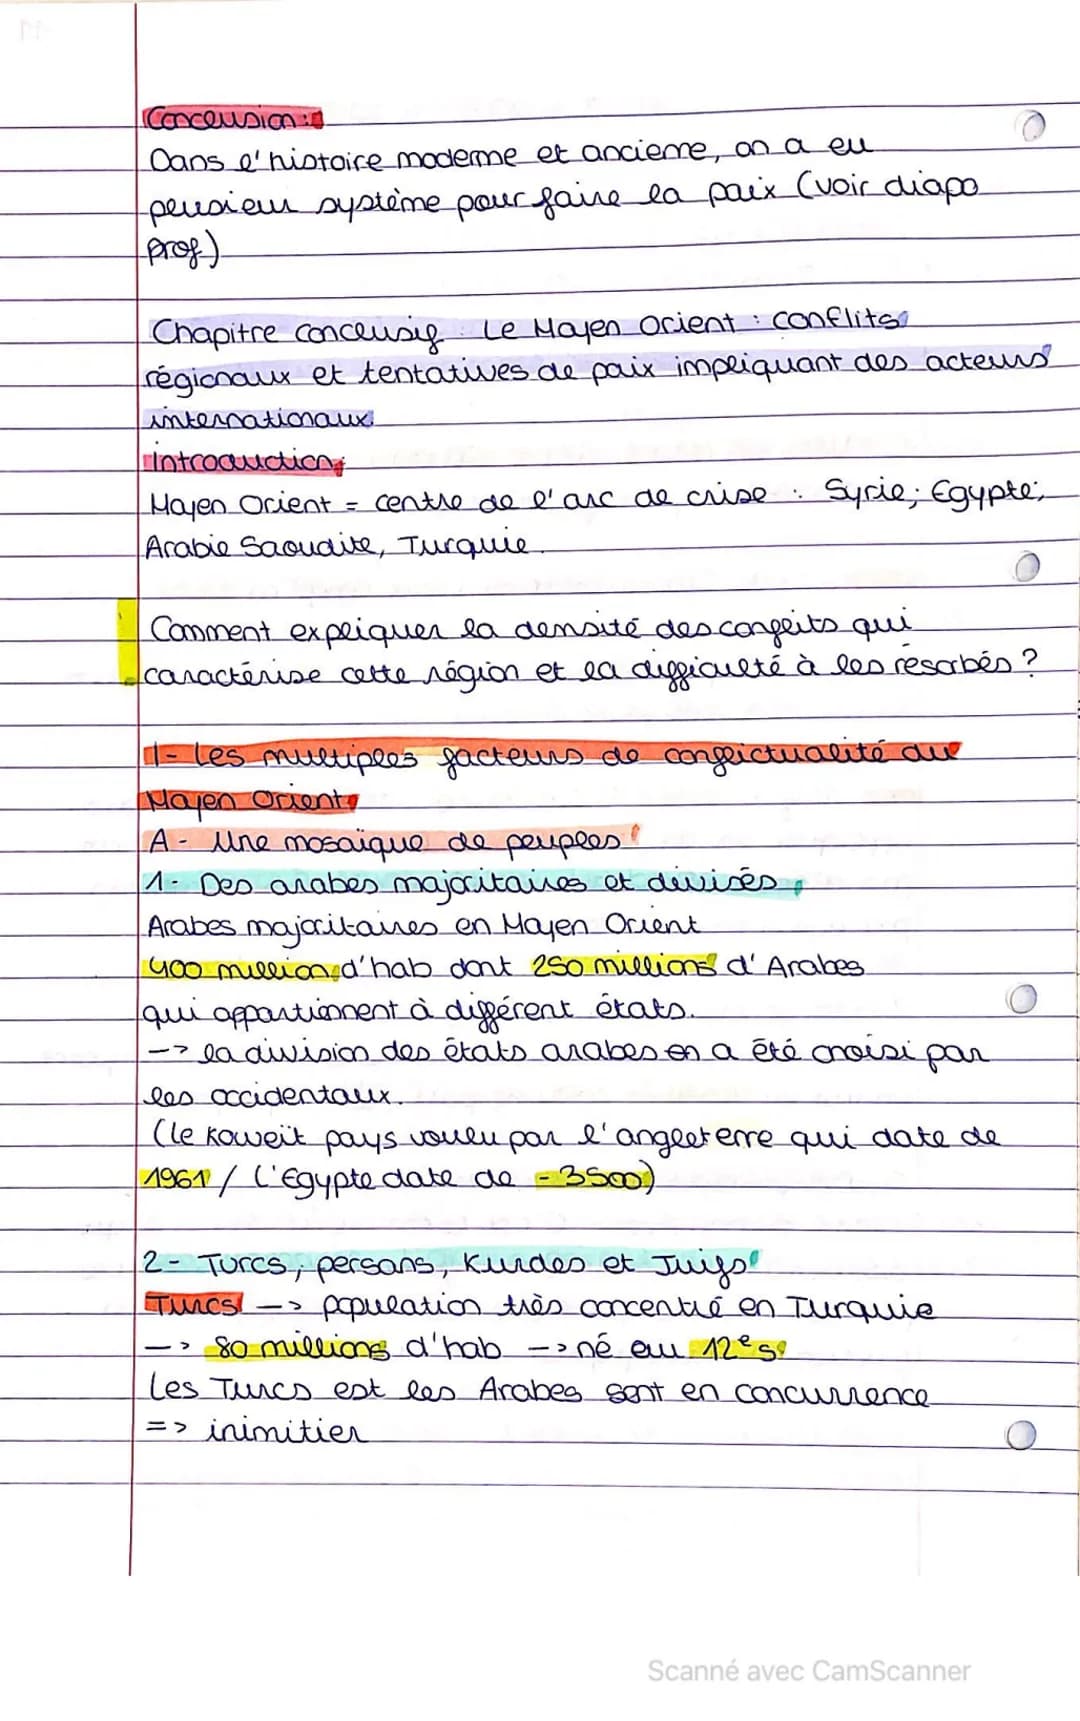 Conclusion :
Dans l'histoire moderne et ancienne, on a eu
plusieur système pour faire la paix (voir diapo
prof.)
Chapitre conclusif : Le Moyen Orient : conflits
régionaux et tentatives de paix impliquant des acteurs
internationaux.
introduction ;
Moyen Orient = centre de l'arc de crise : Syrie; Egypte;
Arabie Saoudite, Turquie.
Comment expliquer la densité des conflits qui
caractérise cette région et la difficulté à les résorbés ?
1- Les multiples facteurs de conflictualité du
Moyen Orient
A - Une mosaïque de peuples
1- Des arabes majoritaires et divisés
Arabes majoritaires en Moyen Orient
400 millions d'hab dont 250 millions d'Arabes
qui appartiennent à différent états.
-> la division des états arabes en a été choisi par
les occidentaux.
(le Koweït pays voulu par l'angleterre qui date de
1961 / L'Egypte date de - 3500)
2- Turcs, persans, Kurdes et Juifs
Turcs -> population très concentré en Turquie
-> 80 millions d'hab -> né au 12e s
Les Turcs est les Arabes sont en concurrence
=> inimitier
Scanné avec CamScanner